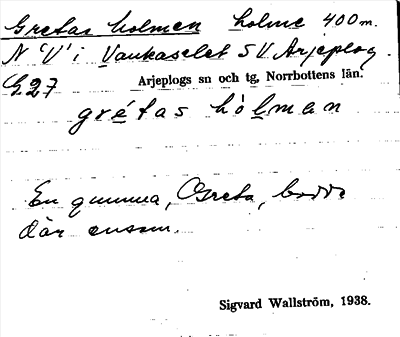 Gretas holmen holme 400 m.
N "V" i Vaukaselet SV Arjeplog.
Arjeplogs sn och tg, Norrbottens län.
grétas hòlman
En gumma, Greta, bodde
där ensam.
Sigvard Wallström, 1938.